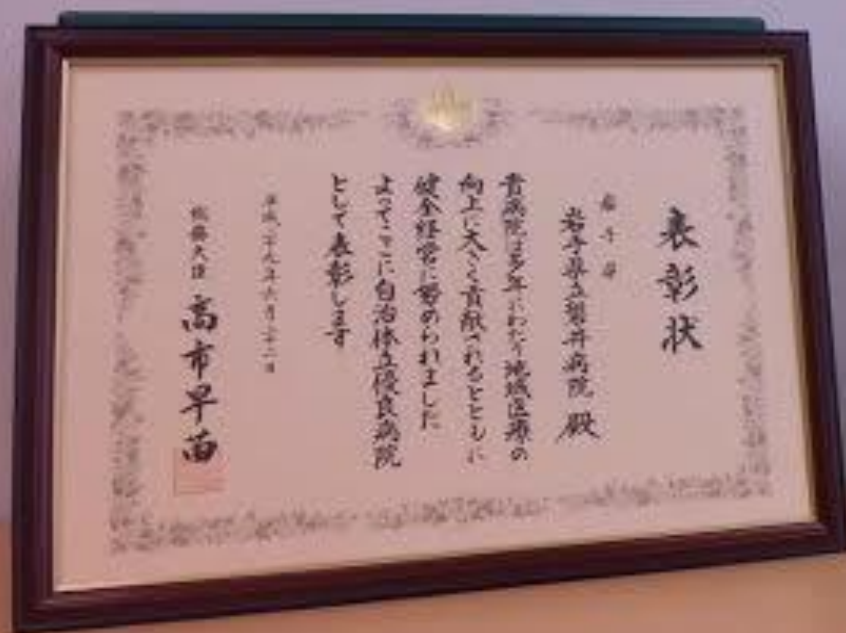 表彰状
岩手県
岩手県立磐井病院 殿
貴病院は多年にわたり地域医療の
向上に大きく貢献されるとともに
健全経営に努められました
よってここに自治体立優良病院
として表彰します
平成二十九年六月二十二日
総務大臣 高市早苗